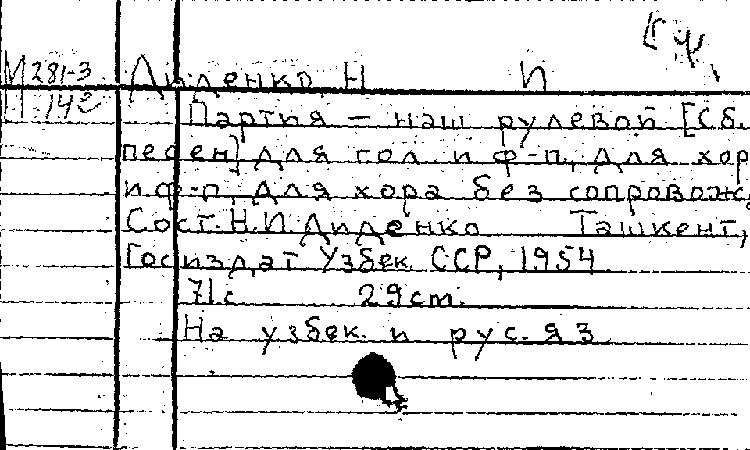 М 281-3 Диденко, Н И
143
Партия – наш рулевой [Сб.
песен] для гол и ф-п, для хор
и ф-п, для хора без сопровож,
Сост. Н.И Диденко Ташкент,
Госиздат Узбек ССР, 1954
71с 29cm.
На узбек. и рус. яз